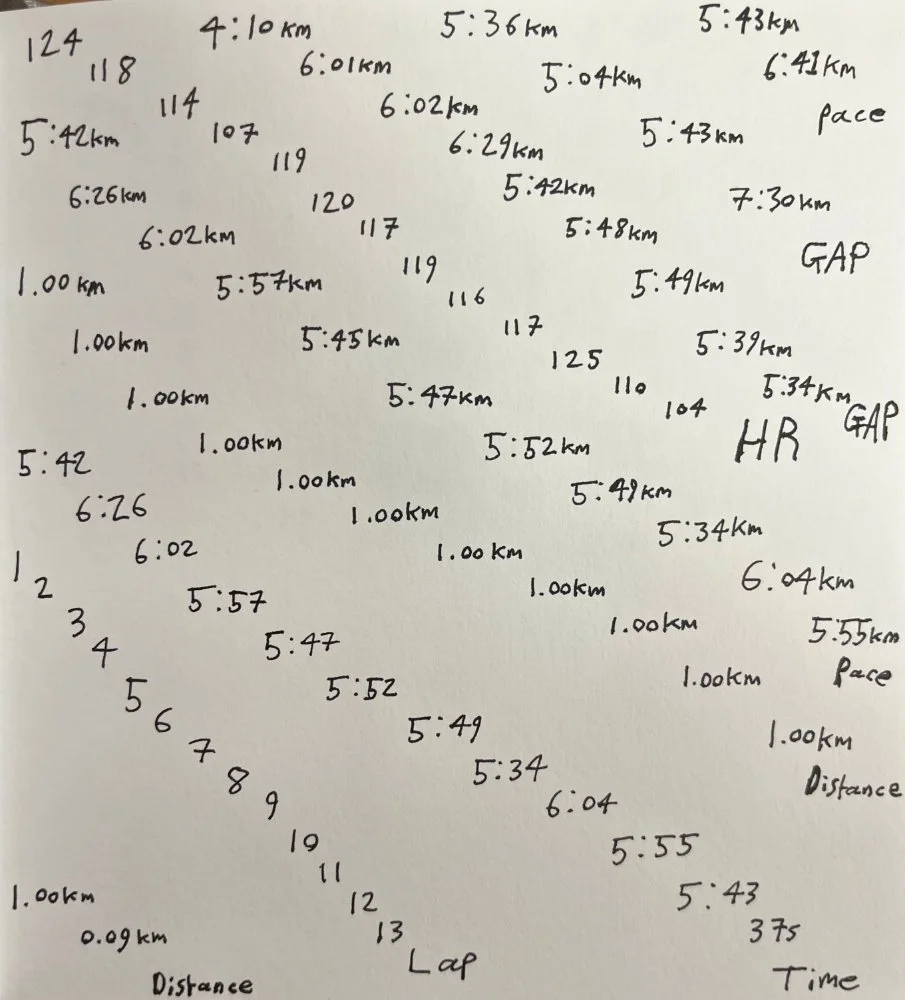 5:43km 6:41km pace
5:36km 5:04km 5:43km 7:30km GAP
4:10km 6:01km 6:02km 6:29km 5:42km 5:48km 5:49km 5:39km 5:34km GAP
124 118 114 107 119 120 117 119 116 117 125 110 104 HR
5:42km 6:26km 6:02km 5:57km 5:45km 5:47km 5:52km 5:49km 5:34km 6:04km 5:55km Pace
1.00km 1.00km 1.00km 1.00km 1.00km 1.00km 1.00km 1.00km 1.00km 1.00km 1.00km Distance
5:42 6:26 6:02 5:57 5:47 5:52 5:49 5:34 6:04 5:55 5:43 37s Time
1 2 3 4 5 6 7 8 9 10 11 12 13 Lap
1.00km 0.09km Distance